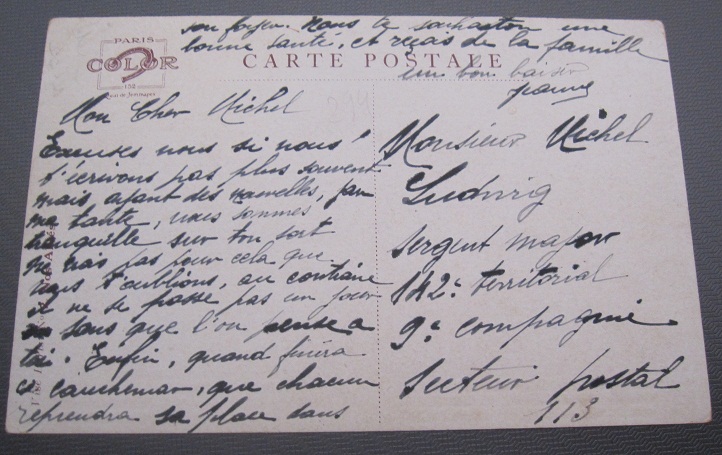 son foyer. Nous te souhaiton une
bonne santé, et reçois de la famille
un bon baiser
PARIS
COLOR
152
Quai de Jemmapes
CARTE POSTALE
294
Mon Cher Michel
Excuses nous si nous
t'écrivons pas plus souvent
mais, ayant des nouvelles, par
ma tante, nous sommes
tranquille sur ton sort
ne crois pas pour cela que
nous t'oublions, au contraire
il ne se passe pas un jour
sans que l'on pense a
toi. Enfin, quand finira
ce cauchemar, que chacun
reprendra sa place dans
Monsieur Michel
Ludwig
Sergent major
142e territorial
9e compagnie
Secteur postal
113